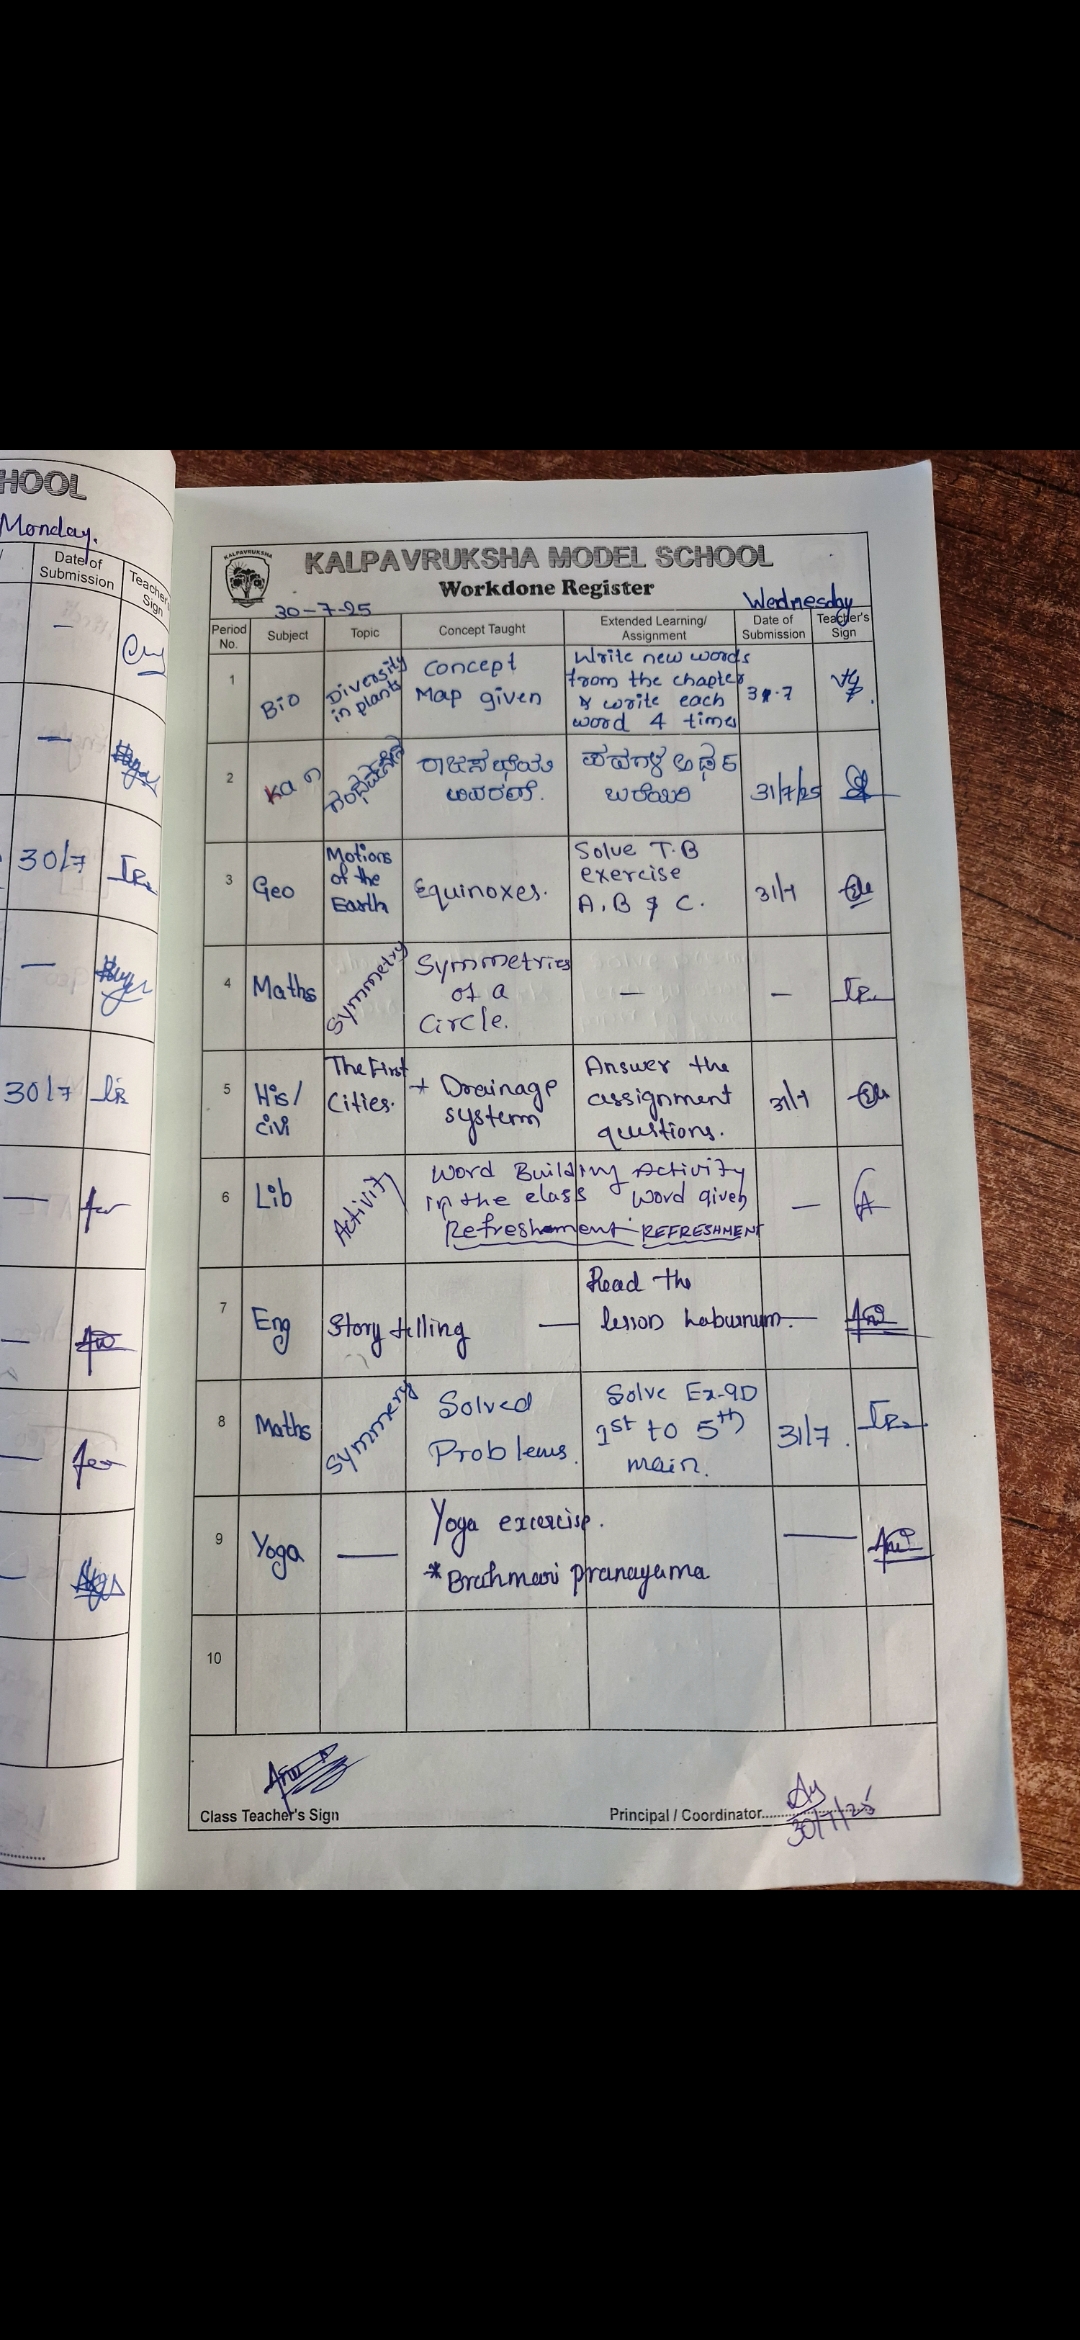 HOOL
Monday.
Date of
Submission
Teacher's
Sign
30/7
30/7
KALPAVRUKSHA
KALPAVRUKSHA MODEL SCHOOL
Workdone Register
30-7-25
Wednesday
Period
No.
Subject
Topic
Concept Taught
Extended Learning/
Assignment
Date of
Submission
Teacher's
Sign
1
Bio
Diversity
in plants
Concept
Map given
Write new words
from the chapter
& write each
word 4 times
31.7
2
Kan
ಪದಗಳ ಅರ್ಥ
ಬರೆಯಿರಿ
31/7/25
3
Geo
Motions
of the
Earth
Equinoxes.
Solve T.B
exercise
A, B & C.
31/7
4
Maths
Symmetry
Symmetries
of a
Circle.
—
—
5
His/
civi
The First
Cities.
+ Drainage
system
Answer the
assignment
questions.
31/7
6
Lib
Activity
Word Building Activity
in the class Word given
Refreshment REFRESHMENT
—
7
Eng
Story telling
—
Read the
lesson Laburnum.
—
8
Maths
Symmery
Solved
Problems.
Solve Ex-9D
1st to 5th
main.
31/7.
9
Yoga
—
Yoga excercise.
*Brahmari pranayama
—
10
Class Teacher's Sign
Principal / Coordinator
30/7/25